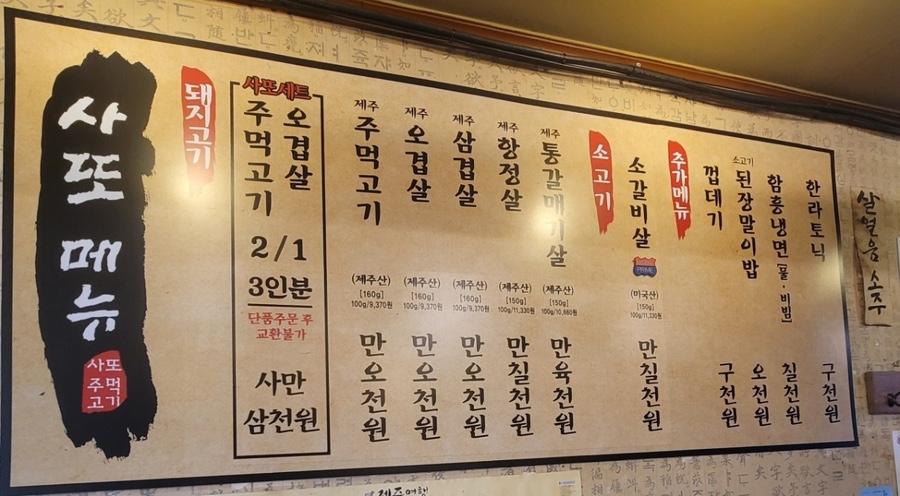 사또 메뉴
사또
주먹
고기
돼지고기
사또세트
오겹살
주먹고기
2/1
3인분
단품주문 후
교환불가
사만
삼천원
제주
주먹고기
(제주산)
[160g]
100g/9,370원
만오천원
제주
오겹살
(제주산)
[160g]
100g/9,370원
만오천원
제주
삼겹살
(제주산)
[160g]
100g/9,370원
만오천원
제주
항정살
(제주산)
[150g]
100g/11,330원
만칠천원
제주
통갈매기살
(제주산)
[150g]
100g/10,660원
만육천원
소고기
소갈비살
PRIME
(미국산)
[150g]
100g/11,330원
만칠천원
추가메뉴
껍데기
구천원
소고기
된장말이밥
오천원
함흥냉면 [물·비빔]
칠천원
한라토닉
구천원
살얼음 소주